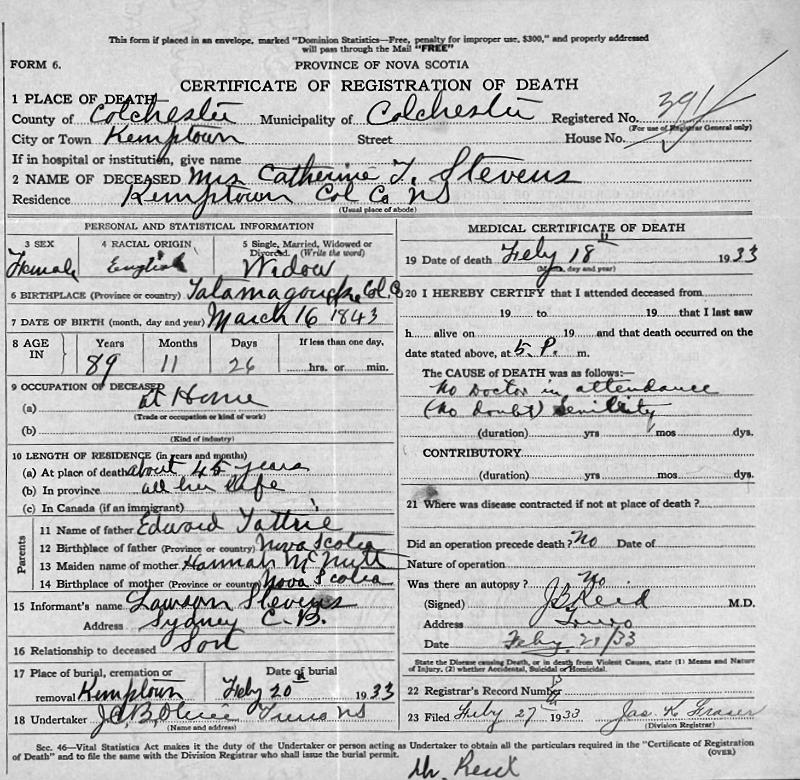 This form if placed in an envelope, marked "Dominion Statistics—Free, penalty for improper use, $300," and properly addressed
will pass through the Mail "FREE"
FORM 6. PROVINCE OF NOVA SCOTIA
CERTIFICATE OF REGISTRATION OF DEATH
1 PLACE OF DEATH
County of Colchester Municipality of Colchester Registered No. 391
(For use of Registrar General only)
City or Town Kemptown Street House No.
If in hospital or institution, give name
2 NAME OF DECEASED Mrs Catherine T. Stevens
Residence Kemptown Col Co NS
(Usual place of abode)
PERSONAL AND STATISTICAL INFORMATION
3 SEX 4 RACIAL ORIGIN 5 Single, Married, Widowed or
Divorced. (Write the word)
Female English Widow
6 BIRTHPLACE (Province or country) Tatamagouche Col. Co
7 DATE OF BIRTH (month, day and year) March 16 1843
8 AGE IN Years Months Days If less than one day,
89 11 26 hrs. or min.
9 OCCUPATION OF DECEASED
(a) at Home
(Trade or occupation or kind of work)
(b)
(Kind of industry)
10 LENGTH OF RESIDENCE (in years and months)
(a) At place of death about 45 years
(b) In province all her life
(c) In Canada (if an immigrant)
Parents
11 Name of father Edward Tattrie
12 Birthplace of father (Province or country) Nova Scotia
13 Maiden name of mother Hannah McNutt
14 Birthplace of mother (Province or country) Nova Scotia
15 Informant's name Lawson Stevens
Address Sydney C.B.
16 Relationship to deceased Son
17 Place of burial, cremation or Date of burial
removal Kemptown Feby 20th 1933
18 Undertaker J.C.B. Truro NS
(Name and address)
MEDICAL CERTIFICATE OF DEATH
19 Date of death Feby 18th 1933
(Month, day and year)
20 I HEREBY CERTIFY that I attended deceased from
19 to 19 that I last saw
h alive on 19 and that death occurred on
date stated above, at 5. P. m.
The CAUSE OF DEATH was as follows:—
No Doctor in attendance
(No doubt) Senility
(duration) yrs mos dys.
CONTRIBUTORY
(duration) yrs mos dys.
21 Where was disease contracted if not at place of death?
Did an operation precede death? No Date of
Nature of operation
Was there an autopsy? No
(Signed) Reid M.D.
Address Truro
Date Feby. 21/33
State the Disease causing Death, or in death from Violent Causes, state (1) Means and Nature
of Injury, (2) whether Accidental, Suicidal or Homicidal.
22 Registrar's Record Number
23 Filed Feby 27 1933 Jas. K Fraser
(Division Registrar)
Sec. 46—Vital Statistics Act makes it the duty of the Undertaker or person acting as Undertaker to obtain all the particulars required in the "Certificate of Registration
of Death" and to file the same with the Division Registrar who shall issue the burial permit. (OVER)
Dr. Reid